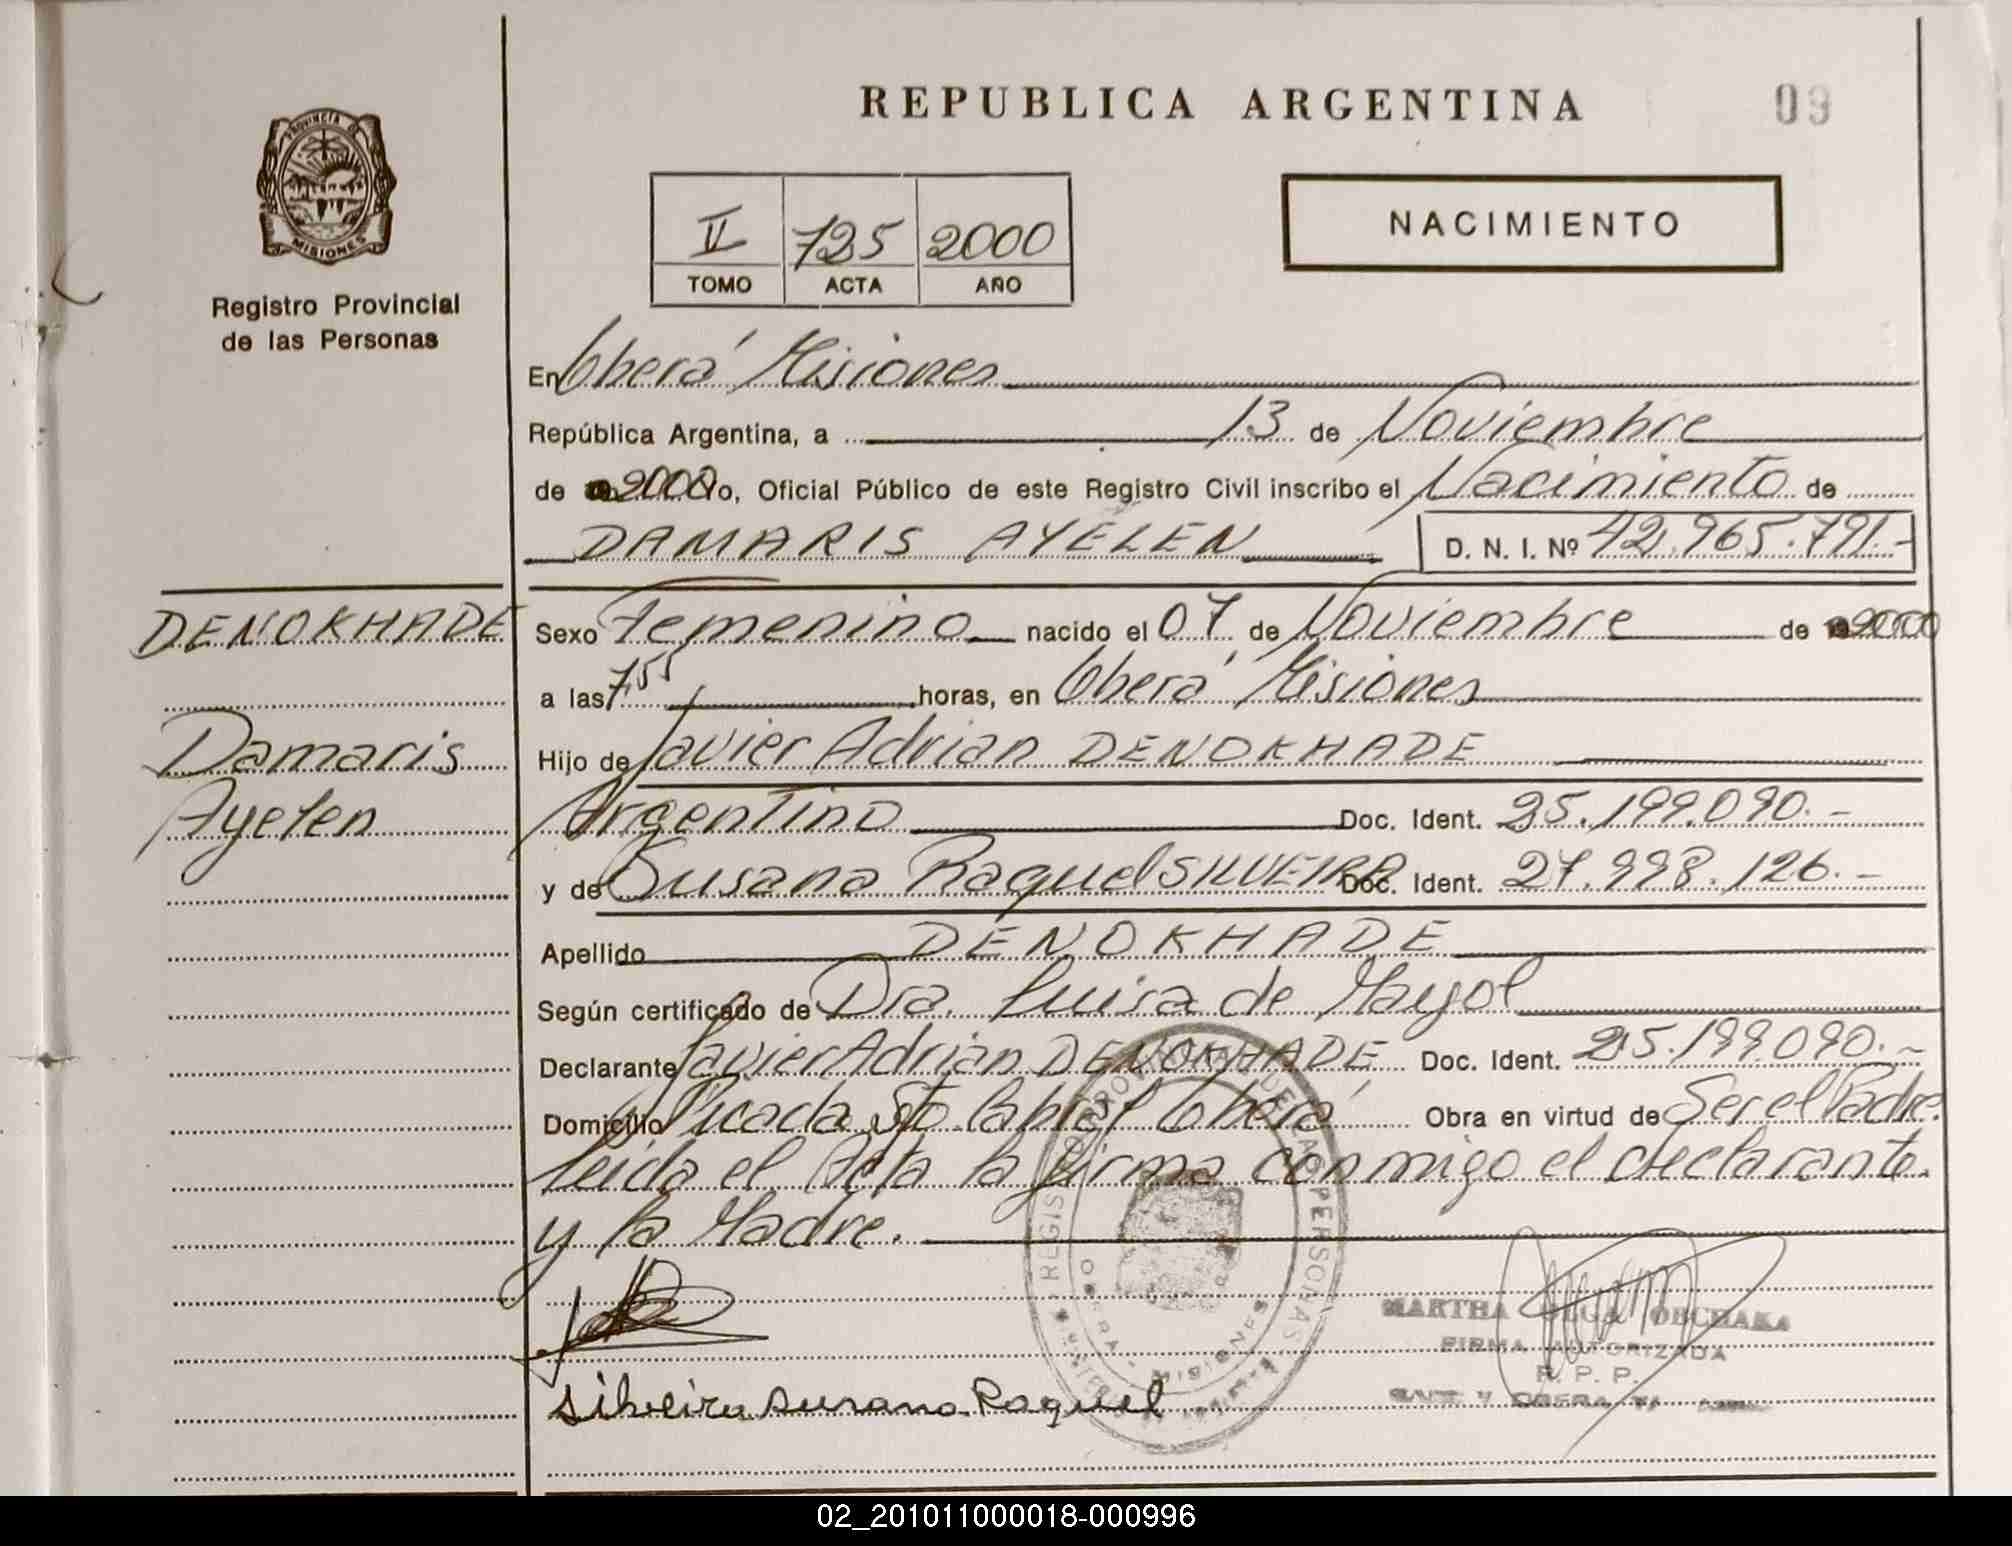 REPUBLICA ARGENTINA
09
PROVINCIA DE
MISIONES
Registro Provincial
de las Personas
II 725 2000
TOMO ACTA AÑO
NACIMIENTO
En Oberá Misiones
República Argentina, a ... 13 de Noviembre
de 2000 yo, Oficial Público de este Registro Civil inscribo el Nacimiento de
DAMARIS AYELEN D. N. I. Nº 42.965.791.-
DENOKHADE
Damaris
Ayelen
Sexo Femenino nacido el 07 de Noviembre de 2000
a las 7,55 horas, en Oberá Misiones
Hijo de Javier Adrian DENOKHADE
Argentino Doc. Ident. 25.199.090.-
y de Susana Raquel SILVEIRA Doc. Ident. 27.998.126.-
Apellido DENOKHADE
Según certificado de Dra. Luisa de Mayol
Declarante Javier Adrian DENOKHADE Doc. Ident. 25.199.090.-
Domicilio Picada Sto. Obera Obra en virtud de Ser el Padre.
Leida el Acta la firma conmigo el declarante
y la Madre.
REGISTRO PROVINCIAL DE LAS PERSONAS
OBERA - MISIONES
MARTHA OLGA OBCHAKA
FIRMA AUTORIZADA
R. P. P.
OBERA
Silveira Susana Raquel
02_201011000018-000996